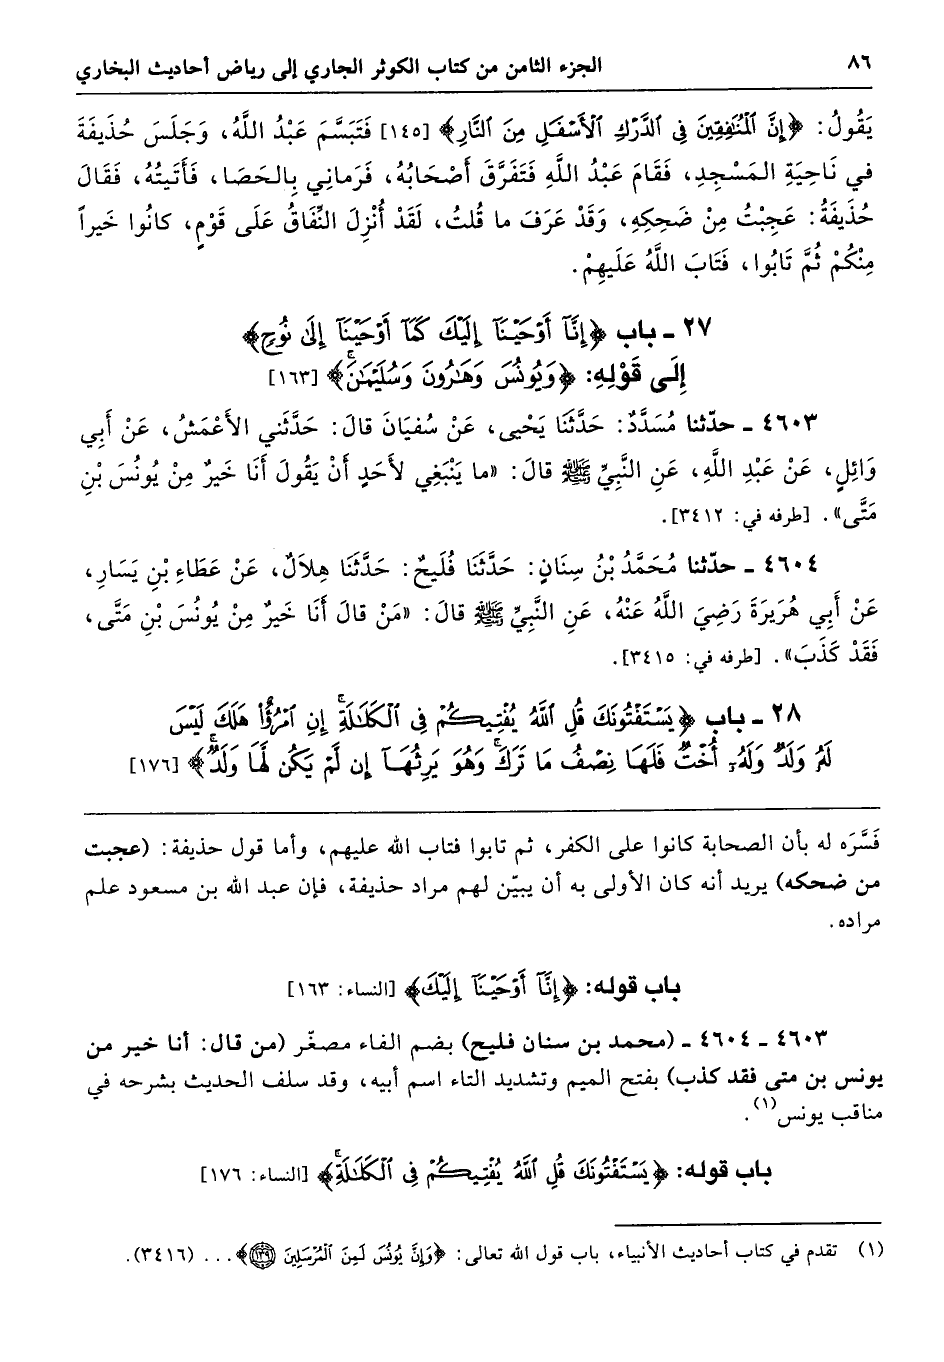 ٨٦ الجزء الثامن من كتاب الكوثر الجاري إلى رياض أحاديث البخاري
يَقُولُ: ﴿إِنَّ ٱلْمُنَٰفِقِينَ فِي ٱلدَّرْكِ ٱلْأَسْفَلِ مِنَ ٱلنَّارِ﴾ [١٤٥] فَتَبَسَّمَ عَبْدُ اللَّهِ، وَجَلَسَ حُذَيفَةُ
في نَاحِيَةِ المَسْجِدِ، فَقَامَ عَبْدُ اللَّهِ فَتَفَرَّقَ أَصْحَابُهُ، فَرَماني بِالحَصَا، فَأَتَيتُهُ، فَقَالَ
حُذَيفَةُ: عَجِبْتُ مِنْ ضَحِكِهِ، وَقَدْ عَرَفَ ما قُلتُ، لَقَدْ أُنْزِلَ النِّفَاقُ عَلَى قَوْمٍ، كانُوا خَيراً
مِنْكُمْ ثُمَّ تَابُوا، فَتَابَ اللَّهُ عَلَيهِمْ.
٢٧ ـ باب ﴿إِنَّآ أَوْحَيْنَآ إِلَيْكَ كَمَآ أَوْحَيْنَآ إِلَىٰ نُوحٍ﴾
إِلَى قَوْلِهِ: ﴿وَيُونُسَ وَهَٰرُونَ وَسُلَيْمَٰنَۚ﴾ [١٦٣]
٤٦٠٣ ـ حدّثنا مُسَدَّدٌ: حَدَّثَنَا يَحْيى، عَنْ سُفيَانَ قالَ: حَدَّثَني الأَعْمَشُ، عَنْ أَبِي
وَائِلٍ، عَنْ عَبْدِ اللَّهِ، عَنِ النَّبِيِّ ﷺ قالَ: «ما يَنْبَغِي لأَحَدٍ أَنْ يَقُولَ أَنَا خَيرٌ مِنْ يُونُسَ بْنِ
مَتَّى». [طرفه في: ٣٤١٢].
٤٦٠٤ ـ حدّثنا مُحَمَّدُ بْنُ سِنَانٍ: حَدَّثَنَا فُلَيحٌ: حَدَّثَنَا هِلاَلٌ، عَنْ عَطَاءِ بْنِ يَسَارٍ،
عَنْ أَبِي هُرَيرَةَ رَضِيَ اللَّهُ عَنْهُ، عَنِ النَّبِيِّ ﷺ قالَ: «مَنْ قالَ أَنَا خَيرٌ مِنْ يُونُسَ بْنِ مَتَّى،
فَقَدْ كَذَبَ». [طرفه في: ٣٤١٥].
٢٨ ـ باب ﴿يَسْتَفْتُونَكَ قُلِ ٱللَّهُ يُفْتِيكُمْ فِي ٱلْكَلَٰلَةِۚ إِنِ ٱمْرُؤٌاْ هَلَكَ لَيْسَ
لَهُۥ وَلَدٌ وَلَهُۥٓ أُخْتٌ فَلَهَا نِصْفُ مَا تَرَكَۚ وَهُوَ يَرِثُهَآ إِن لَّمْ يَكُن لَّهَا وَلَدٌۚ﴾ [١٧٦]
فَسَّرَه له بأن الصحابة كانوا على الكفر، ثم تابوا فتاب الله عليهم، وأما قول حذيفة: (عجبت
من ضحكه) يريد أنه كان الأولى به أن يبيّن لهم مراد حذيفة، فإن عبد الله بن مسعود علم
مراده.
باب قوله: ﴿إِنَّآ أَوْحَيْنَآ إِلَيْكَ﴾ [النساء: ١٦٣]
٤٦٠٣ ـ ٤٦٠٤ ـ (محمد بن سنان فليح) بضم الفاء مصغّر (من قال: أنا خير من
يونس بن متى فقد كذب) بفتح الميم وتشديد التاء اسم أبيه، وقد سلف الحديث بشرحه في
مناقب يونس(١).
باب قوله: ﴿يَسْتَفْتُونَكَ قُلِ ٱللَّهُ يُفْتِيكُمْ فِي ٱلْكَلَٰلَةِۚ﴾ [النساء: ١٧٦]
(١) تقدم في كتاب أحاديث الأنبياء، باب قول الله تعالى: ﴿وَإِنَّ يُونُسَ لَمِنَ ٱلْمُرْسَلِينَ ١٣٩﴾... (٣٤١٦).